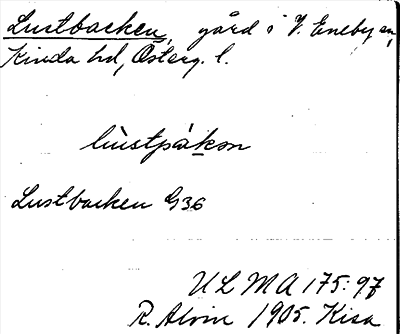 Lustbacken, gård i V. Eneby sn,
Kinda hd, Österg. l.
lùstpákon
Lustbacken G36
ULMA 175:97
R. Alvin 1905. Kisa